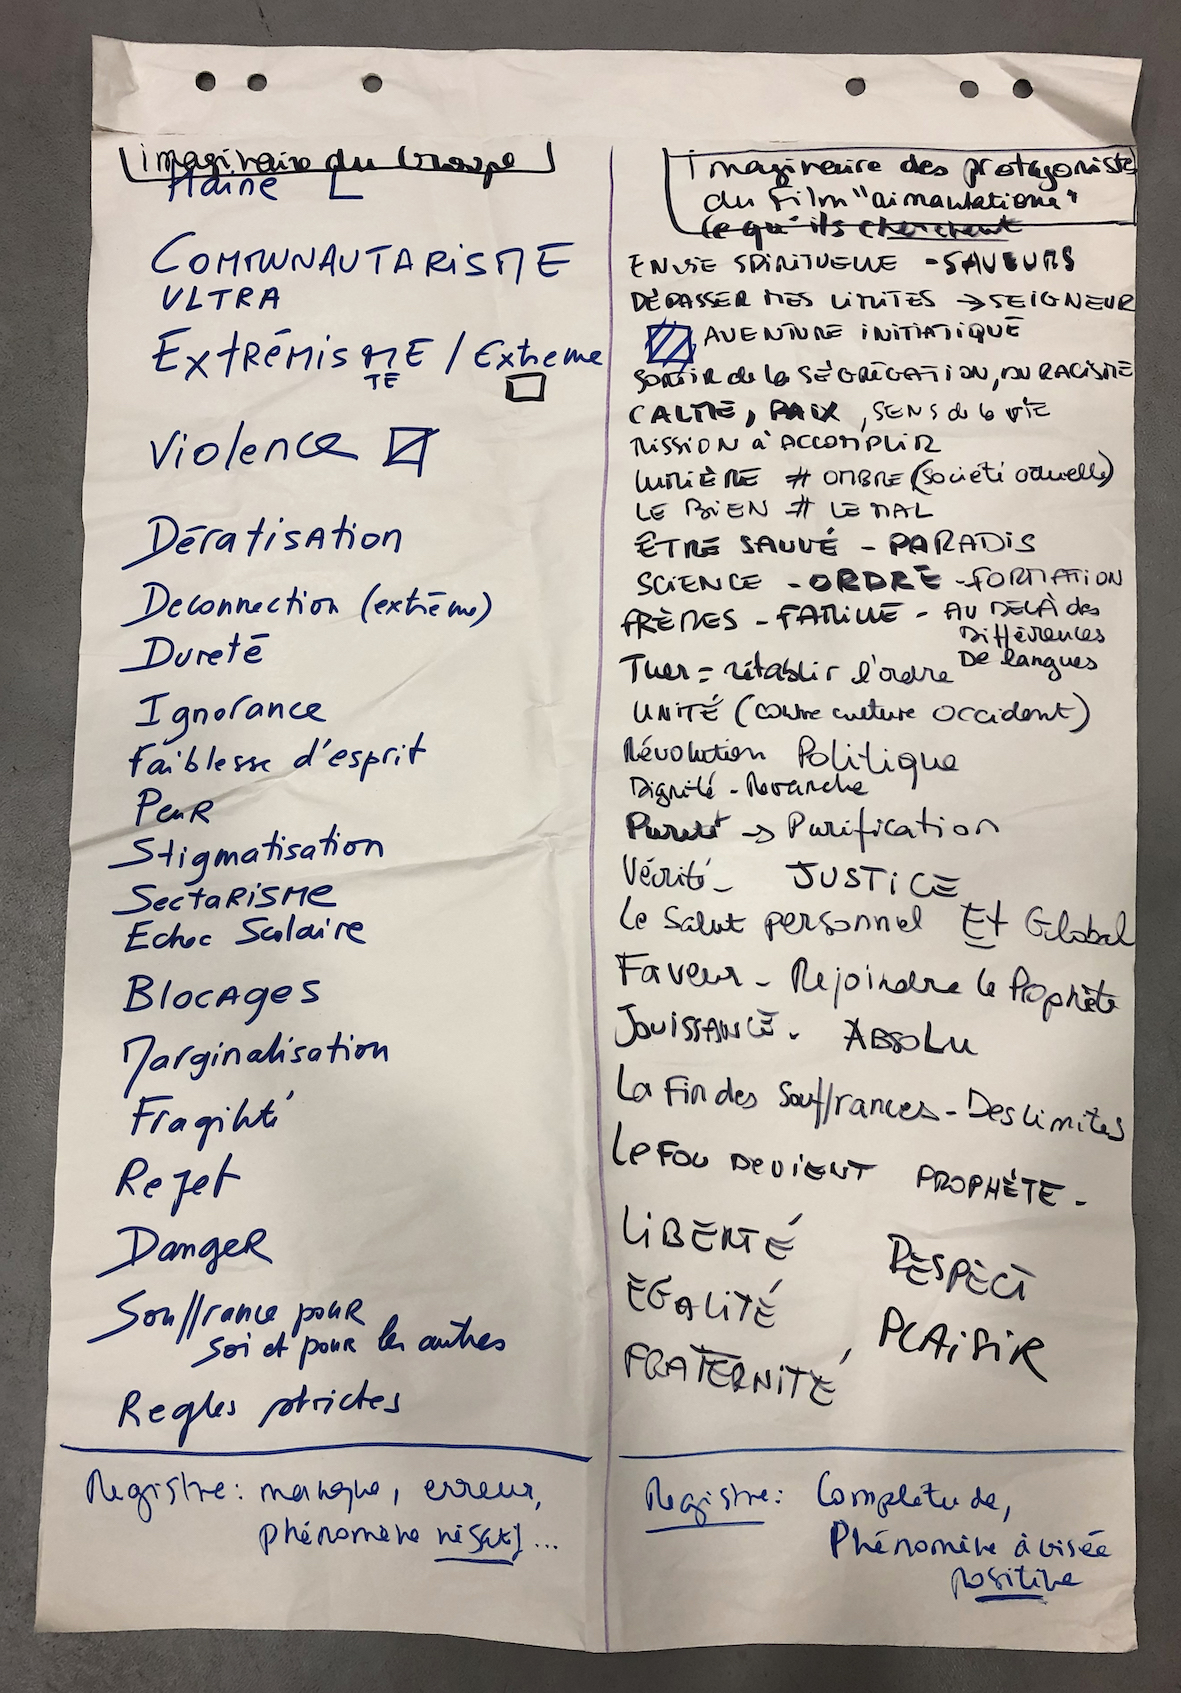 imaginaire du Groupe
Haine
COMMUNAUTARISME
ULTRA
EXTRÉMISME / Extreme
TÉ
Violence
Dératisation
Deconnection (extrême)
Dureté
Ignorance
faiblesse d'esprit
PeuR
Stigmatisation
SectaRisme
Echec Scolaire
BLOCAGES
Marginalisation
Fragilité
Rejet
DangeR
Souffrance pouR
soi et pouR les autres
Regles strictes
Registre: manque, erreur,
phénomène négatif...
Imaginaire des protagoniste
du Film "aimantations"
ce qu'ils cherchent
ENVIE SPIRITUELLE - SAVEURS
DÉPASSER MES LIMITES → SEIGNEUR
AVENTURE INITIATIQUE
SORTIR de la SÉGRÉGATION, DU RACISME
CALME, PAIX, SENS de la VIE
MISSION à ACCOMPLIR
LUMIÈRE # OMBRE (société actuelle)
LE BIEN # LE MAL
ÊTRE SAUVÉ - PARADIS
SCIENCE - ORDRE - FORMATION
FRÈRES - FAMILLE - AU DELÀ des
Différences
De langues
Tuer = rétablir l'ordre
UNITÉ (contre culture occident)
Révolution Politique
Dignité - Revanche
Pureté → Purification
Vérité - JUSTICE
Le Salut personnel Et Global
Faveur - Rejoindre le Prophète
JOUISSANCE - ABSOLU
La Fin des Souffrances - Des limites
Le FOU DEVIENT PROPHÈTE -
LIBERTÉ
RESPECT
EGALITÉ
PLAISIR
FRATERNITÉ
Registre: Complétude,
Phénomène à visée
positive